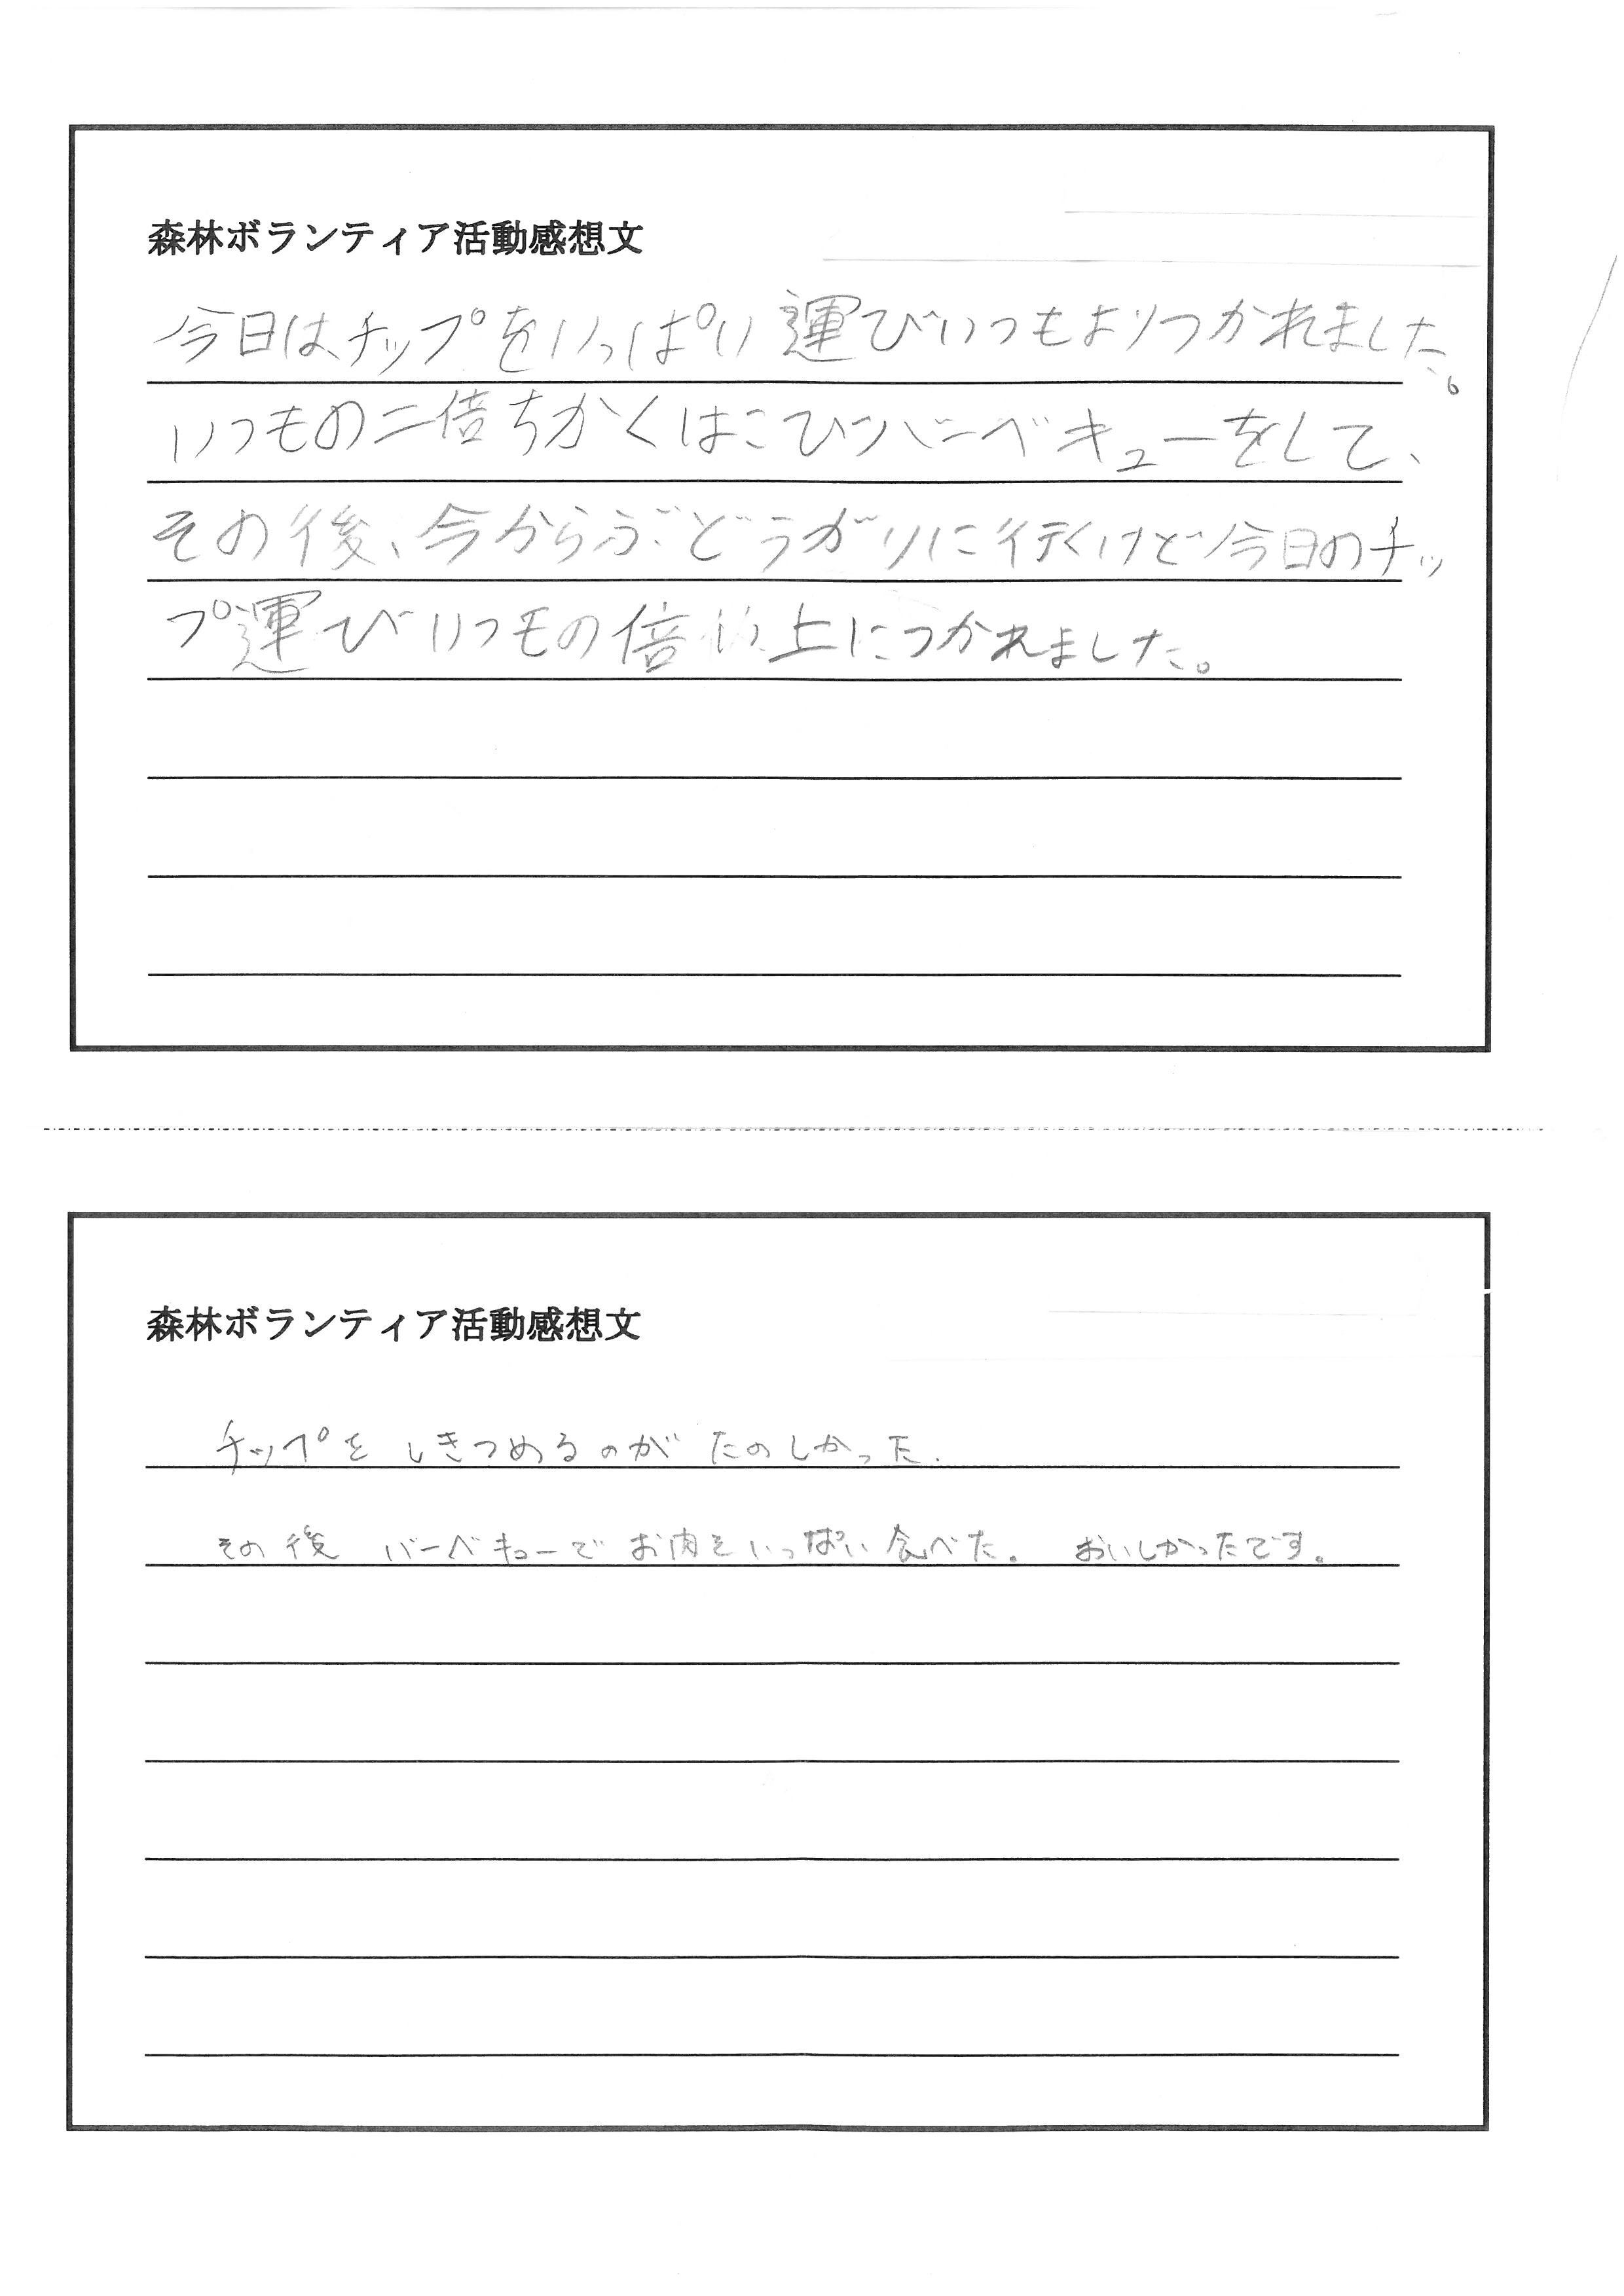 森林ボランティア活動感想文
今日は、チップをいっぱい運びいつもよりつかれました。
いつもの二倍ちかくはこびバーベキューをして、
その後、今からぶどうがりに行くけど今日のチッ
プ運びいつもの倍以上につかれました。
森林ボランティア活動感想文
チップを しきつめるのが たのしかった.
その後 バーベキューで お肉をいっぱい食べた。 おいしかったです。